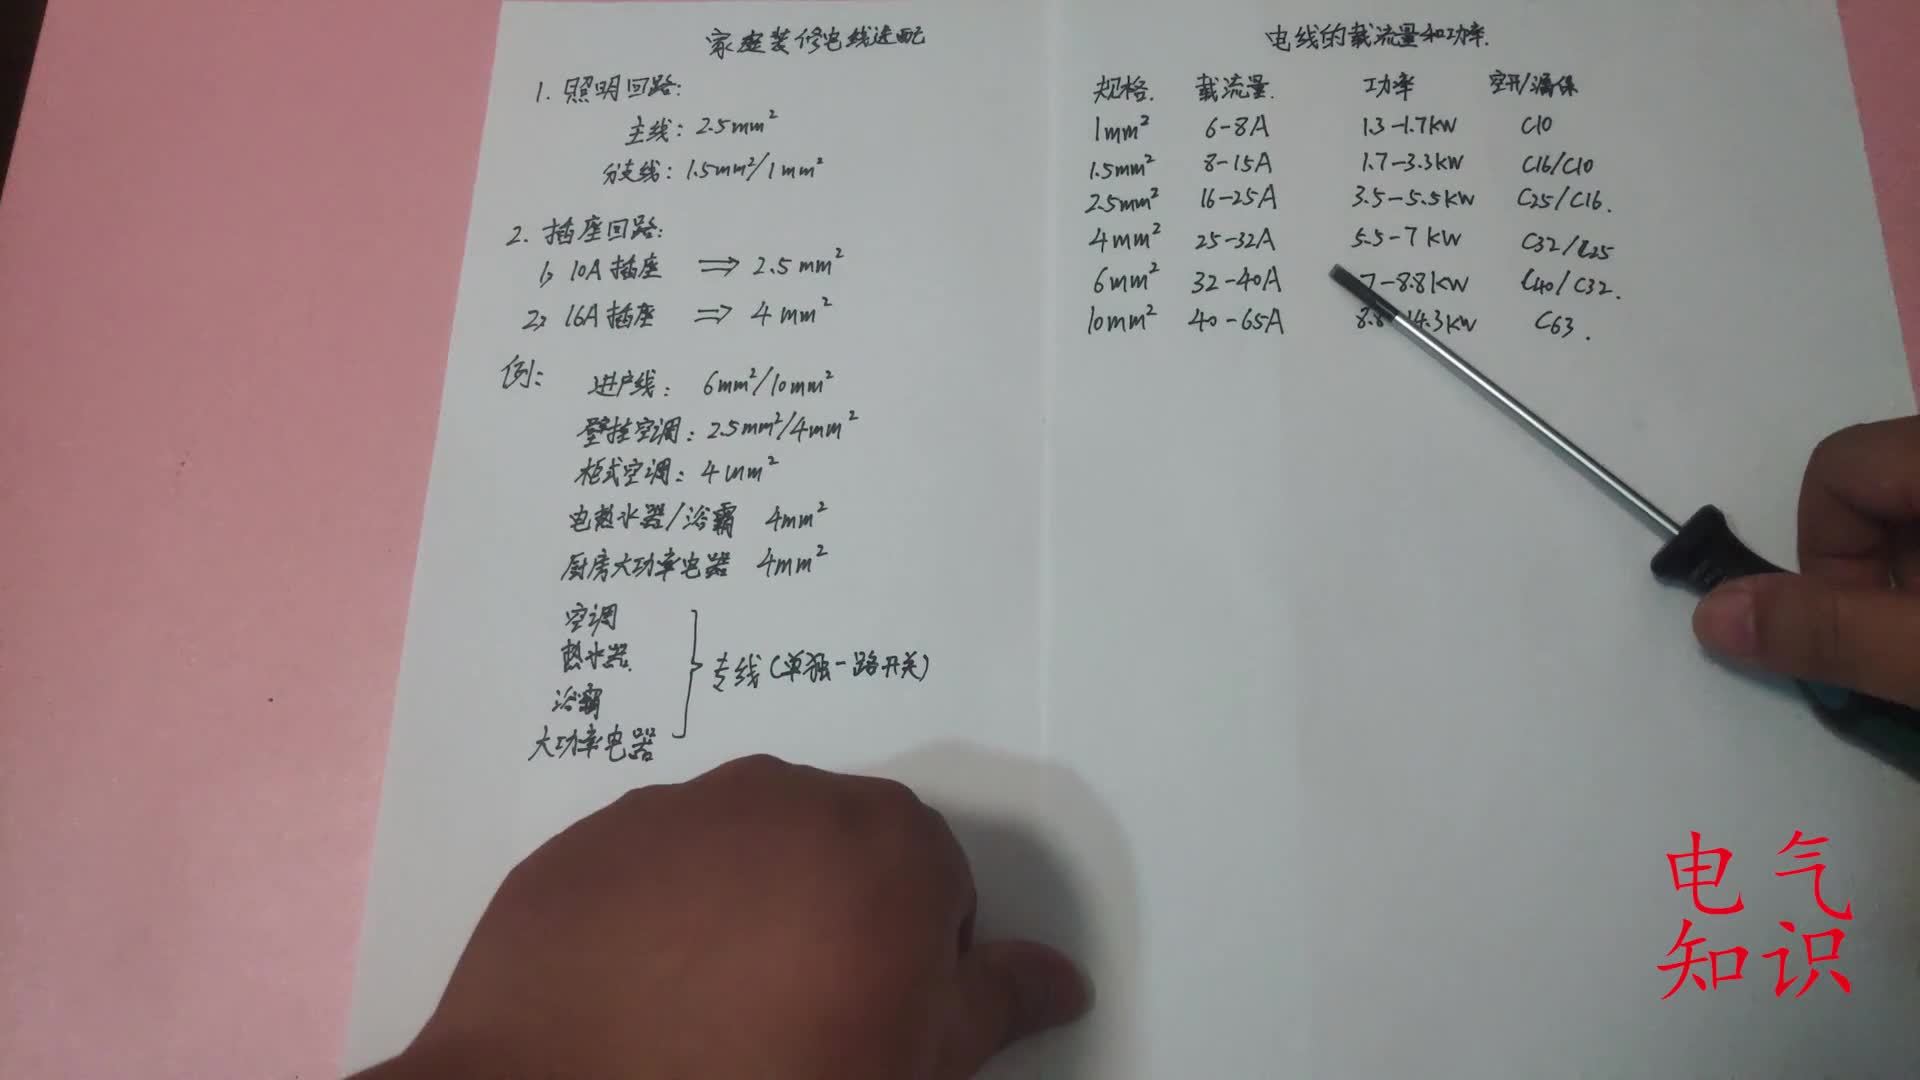 家庭装修电线选配
1. 照明回路:
主线: 2.5mm²
分支线: 1.5mm²/1mm²
2. 插座回路:
1, 10A插座 ⇒ 2.5mm²
2, 16A插座 ⇒ 4mm²
例: 进户线: 6mm²/10mm²
壁挂空调: 2.5mm²/4mm²
柜式空调: 4mm²
电热水器/浴霸 4mm²
厨房大功率电器 4mm²
空调
热水器.
浴霸
大功率电器
专线(单独一路开关)
电线的载流量和功率.
规格. 载流量. 功率 空开/漏保
1mm² 6-8A 1.3-1.7kW C10
1.5mm² 8-15A 1.7-3.3kW C16/C10
2.5mm² 16-25A 3.5-5.5kW C25/C16.
4mm² 25-32A 5.5-7kW C32/C25
6mm² 32-40A 7-8.8kW C40/C32.
10mm² 40-65A 14.3kW C63.
电气
知识